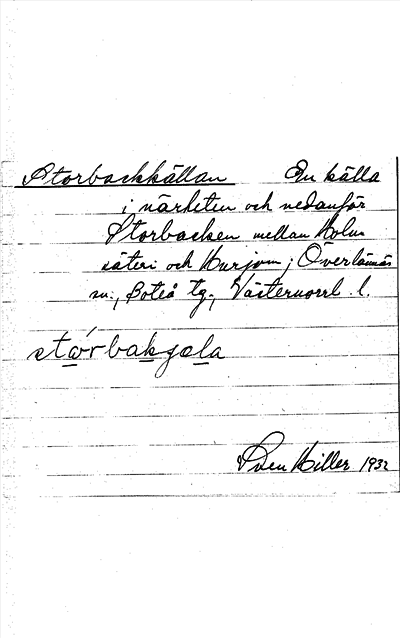 Storbackkällan En källa
i närheten och nedanför
Storbacken mellan Holm
säteri och Hurjom; Överlännäs
sn., Boteå tg., Västernorrl. l.
stórbakgala
Sven Hiller 1932